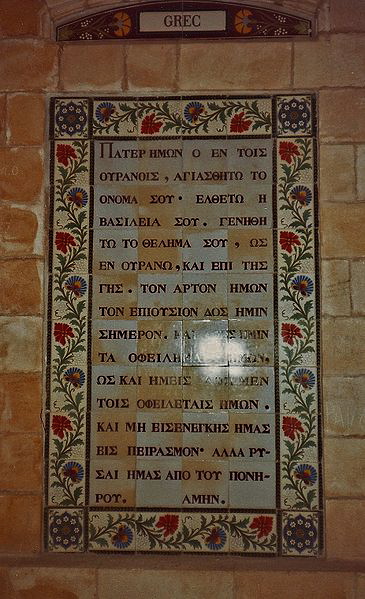 GREC
ΠΑΤΕΡ ΗΜΩΝ Ο ΕΝ ΤΟΙΣ
ΟΥΡΑΝΟΙΣ, ΑΓΙΑΣΘΗΤΩ ΤΟ
ΟΝΟΜΑ ΣΟΥ· ΕΛΘΕΤΩ Η
ΒΑΣΙΛΕΙΑ ΣΟΥ. ΓΕΝΗΘΗ
ΤΩ ΤΟ ΘΕΛΗΜΑ ΣΟΥ, ΩΣ
ΕΝ ΟΥΡΑΝΩ, ΚΑΙ ΕΠΙ ΤΗΣ
ΓΗΣ. ΤΟΝ ΑΡΤΟΝ ΗΜΩΝ
ΤΟΝ ΕΠΙΟΥΣΙΟΝ ΔΟΣ ΗΜΙΝ
ΣΗΜΕΡΟΝ. ΗΜΙΝ
ΤΑ ΗΜΩΝ,
ΩΣ ΚΑΙ ΗΜΕΙΣ
ΤΟΙΣ ΟΦΕΙΛΕΤΑΙΣ ΗΜΩΝ.
ΚΑΙ ΜΗ ΕΙΣΕΝΕΓΚΗΣ ΗΜΑΣ
ΕΙΣ ΠΕΙΡΑΣΜΟΝ· ΑΛΛΑ ΡΥ-
ΣΑΙ ΗΜΑΣ ΑΠΟ ΤΟΥ ΠΟΝΗ-
ΡΟΥ. ΑΜΗΝ.